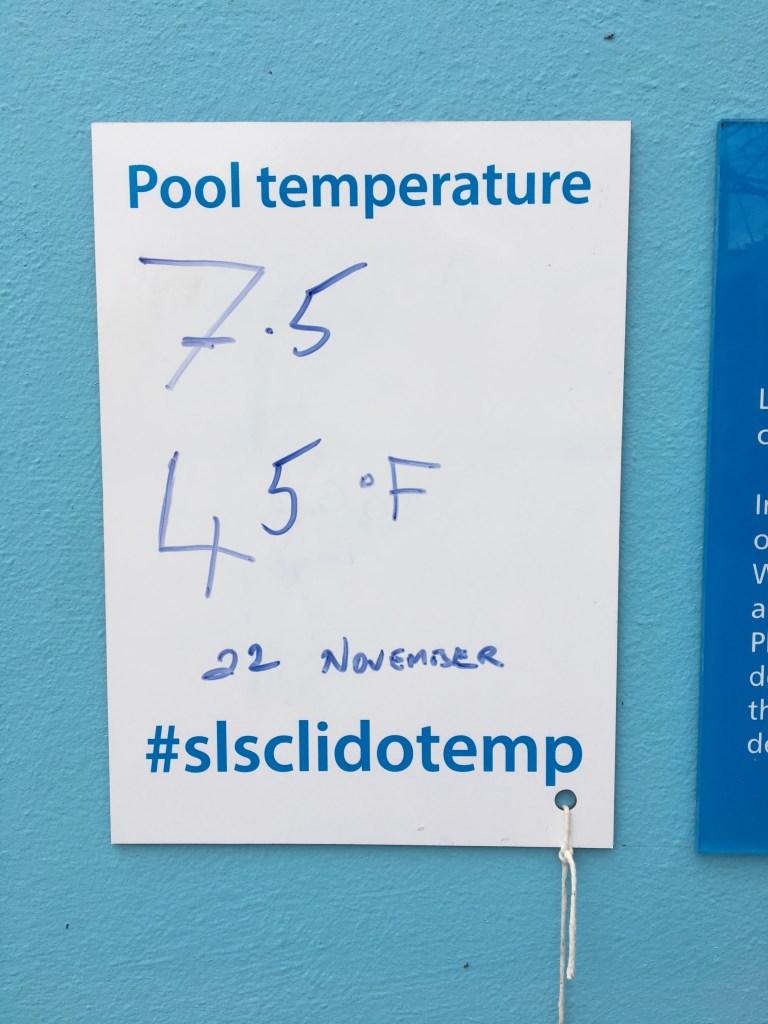 Pool temperature
7.5
45 °F
22 NOVEMBER
#slsclidotemp